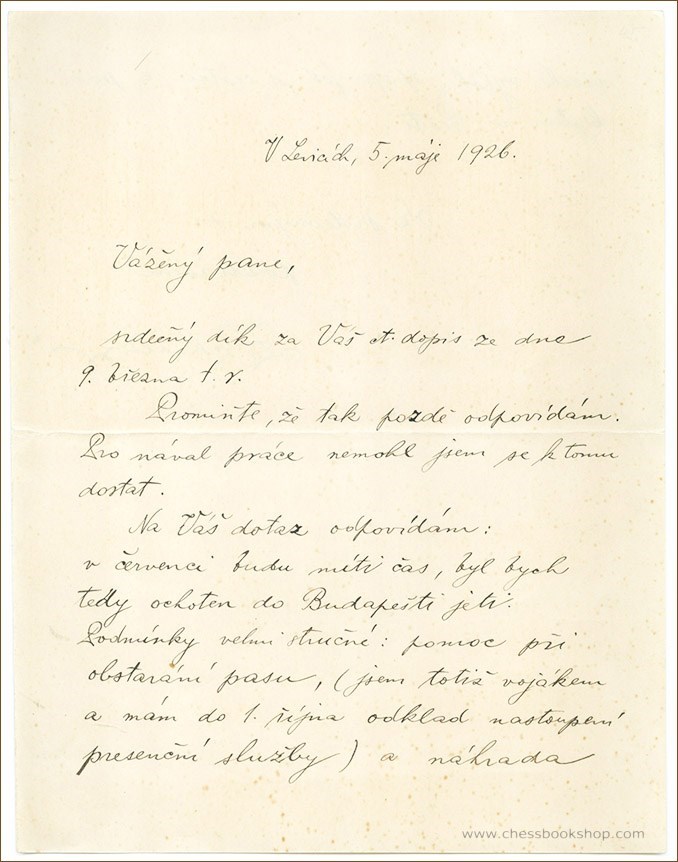 V Levicích, 5. máje 1926.
Vážený pane,
srdečný dík za Váš ct. dopis ze dne
9. března t. r.
Promiňte, že tak pozdě odpovídám.
Pro nával práce nemohl jsem se k tomu
dostat.
Na Váš dotaz odpovídám:
v červenci budu míti čas, byl bych
tedy ochoten do Budapešti jeti.
Podmínky velmi stručné: pomoc při
obstarání pasu, (jsem totiž vojákem
a mám do 1. října odklad nastoupení
presenční služby) a náhrada
www.chessbookshop.com